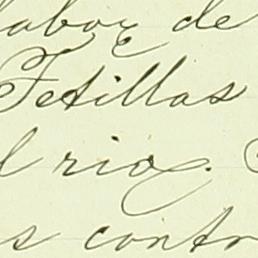 labor de
Tetillas
l rio.
s contr